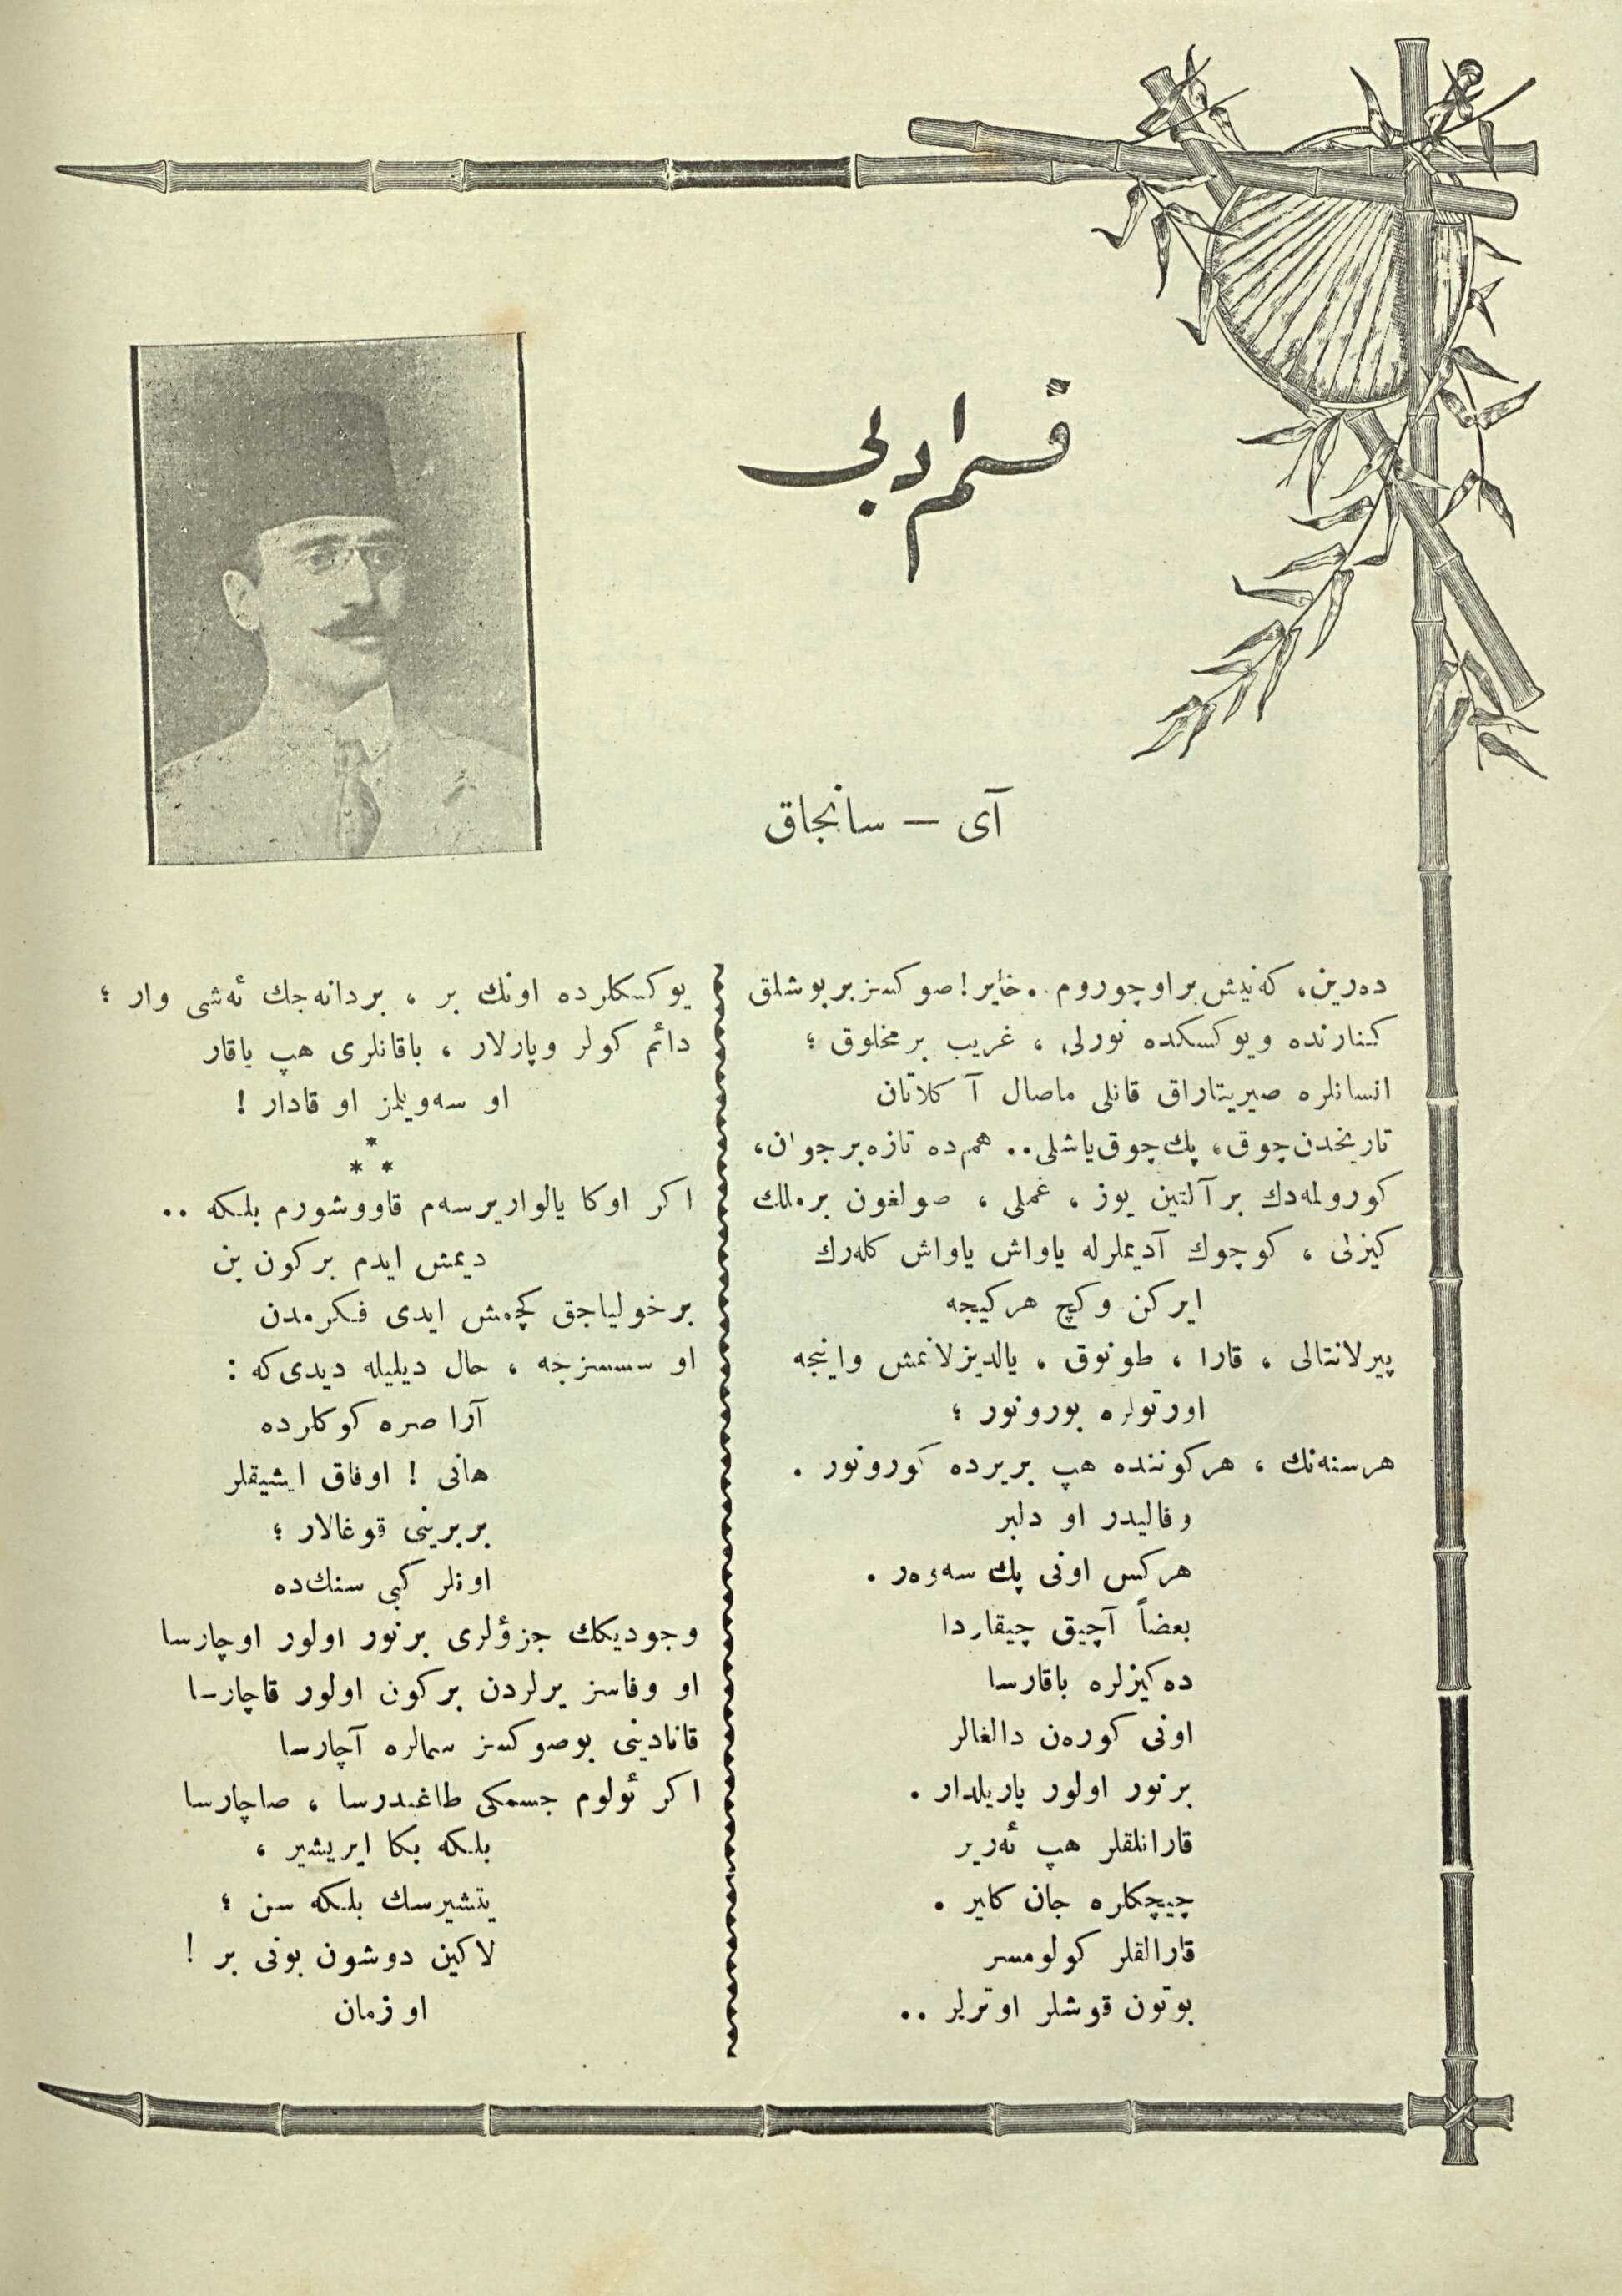 قسم ادبی
آی — سانجاق
ده‌رین، كه‌نیش بر اوچوروم.. خایر! صوكسز بر بوشلق
كنارنده و یوكسكده نورلی، غریب بر مخلوق ؛
انسانلره صیریتاراق قانلی ماصال آ كلاتان
تاریخدن چوق، پك چوق یاشلی.. هم‌ده تازه بر جوان،
كورولمه‌دك بر آلتین یوز ، غملی ، صولغون بر ملك
كیزلی ، كوچوك آدیملرله یاواش یاواش كله‌رك
ایركن و كچ هر كیجه
پیرلانتالی ، قارا ، طونوق ، یالدیزلانمش و اینجه
اورتولره بورونور ؛
هر سنه‌نك ، هر كوننده هپ بر یرده كورونور .
وفالیدر او دلبر
هركس اونی پك سه‌وه‌ر .
بعضاً آچیق چیقاردا
ده كیزلره باقارسا
اونی كوره‌ن دالغالر
بر نور اولور پاریلدار .
قارانلقلر هپ ئه‌ریر
چیچكلره جان كلیر .
قارالقلر كولومسر
بوتون قوشلر اوترلر ..
یوكسكلرده اونك بر ، بر دانه‌جك ئه‌شی وار ؛
دائم كولر و پارلار ، باقانلری هپ یاقار
او سه‌ویلمز او قادار !
* * *
اكر اوكا یالواریرسه‌م قاووشورم بلكه ..
دیمش ایدم بر كون بن
بر خولیاجق كچمش ایدی فكرمدن
او سسسزجه ، حال دیلیله دیدی كه :
آرا صره كوكلرده
هانی ! اوفاق ایشیقلر
بربرینی قوغالار ؛
اونلر كبی سنك‌ده
وجودیكك جزؤلری بر نور اولور اوچارسا
او وفاسز یرلردن بر كون اولور قاچارسا
قانادینی بو صوكسز سمالره آچارسا
اكر ئولوم جسمكی طاغیدرسا ، صاچارسا
بلكه بكا ایریشیر ،
یتشیرسك بلكه سن ؛
لاكین دوشون بونی بر !
او زمان